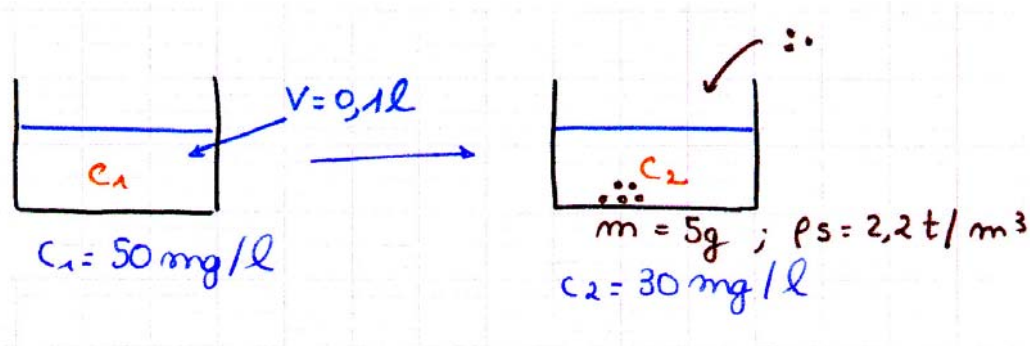 V=0,1l
C1
C1=50 mg/l
C2
m = 5g ; ρs=2,2t/m³
C2=30 mg/l